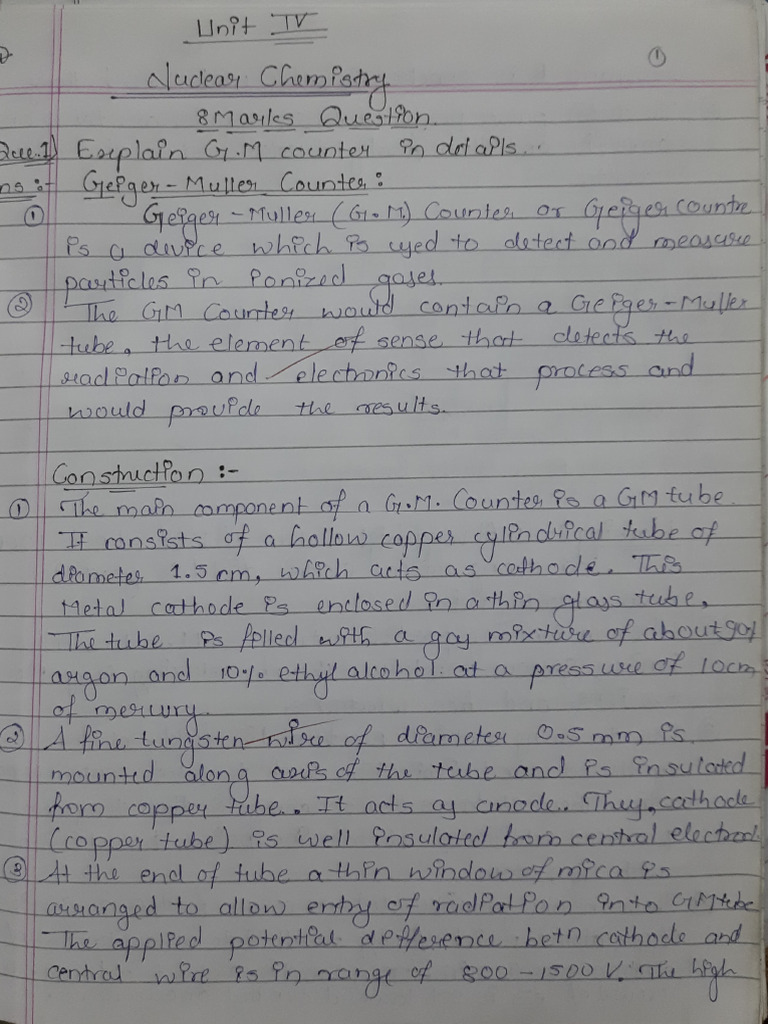 Unit IV
①
Nuclear Chemistry
8 Marks Question.
Que.1) Explain G.M counter in details..
ns :- Geiger-Muller Counter:
① Geiger-Muller (G.M) Counter or Geiger countre
is a device which is used to detect and measure
particles in ionized gases.
② The GM Counter would contain a Geiger-Muller
tube, the element of sense that detects the
radiation and electronics that process and
would provide the results.
Construction :-
① The main component of a G.M. Counter is a GM tube.
It consists of a hollow copper cylindrical tube of
diameter 1.5 cm, which acts as cathode. This
Metal cathode is enclosed in a thin glass tube,
The tube is filled with a gas mixture of about 90%
argon and 10% ethyl alcohol. at a pressure of 10cm
of mercury.
② A fine tungsten wire of diameter 0.5 mm is
mounted along axis of the tube and is insulated
from copper tube.. It acts as anode. Thus, cathode
(copper tube) is well insulated from central electrod.
③ At the end of tube a thin window of mica is
arranged to allow entry of radiation into GM tube
The applied potential defference betn cathode and
central wire is in range of 800-1500 V. The high